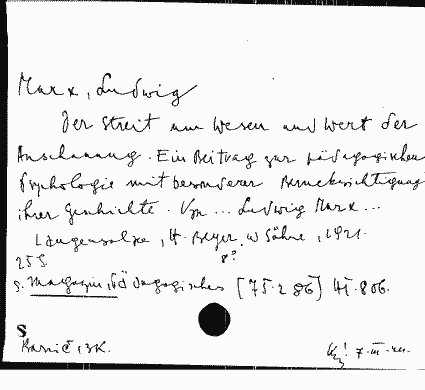 Marx, Ludwig
Der Streit um Wesen und Wert der
Anschauung. Ein Beitrag zur pädagogischen
Psychologie mit besonderer Berücksichtigung
ihrer Geschichte. Von ... Ludwig Marx ...
Langensalza, H. Beyer u Söhne, 1921.
25 S. 8°
S. Magazin, Pädagogisches [75.286] 41.806.
S
7-III-